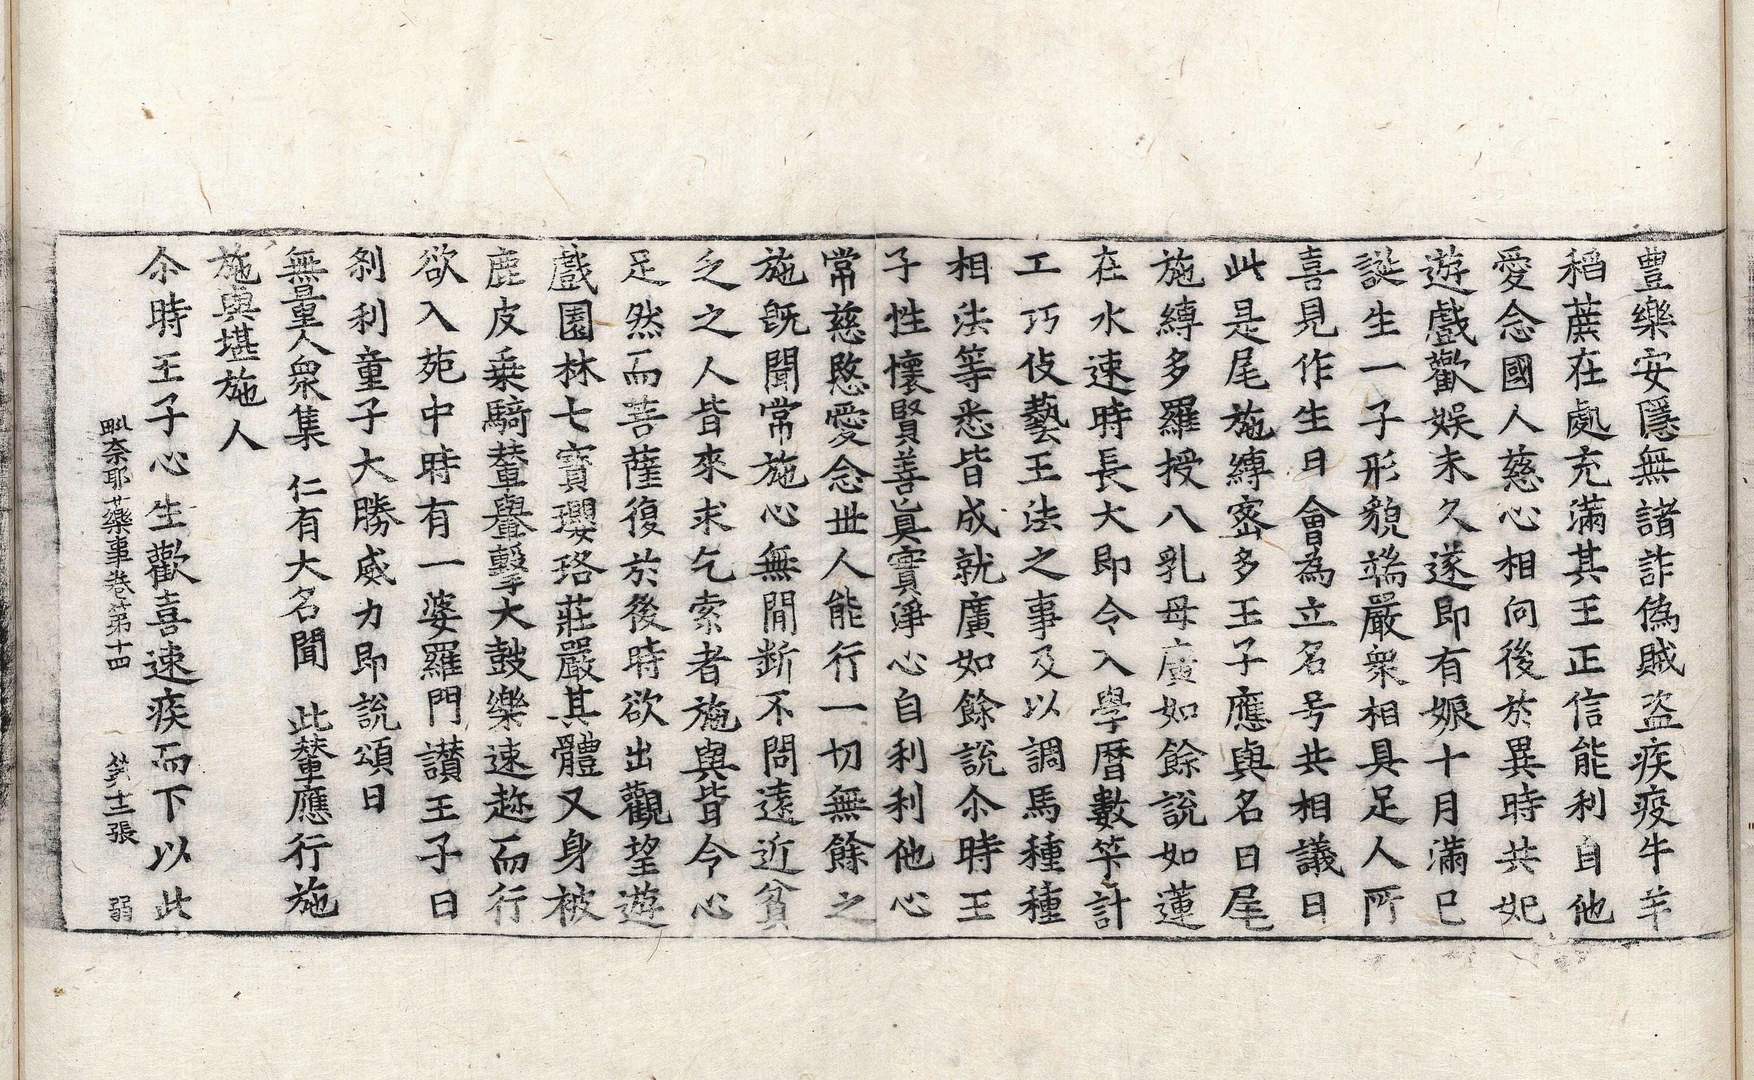 豊樂安隱無諸詐僞賊盜疾疫牛羊
稻蔗在處充滿其王正信能利自他
愛念國人慈心相向後於異時共妃
遊戲歡娛未久遂即有娠十月滿已
誕生一子形貌端嚴衆相具足人所
喜見作生日會為立名号共相議曰
此是尾施縛蜜多王子應與名曰尾
施縛多羅授八乳母廣如餘說如蓮
在水速時長大即令入學曆數笇計
工巧伎藝王法之事及以調馬種種
相法等悉皆成就廣如餘說尒時王
子性懷賢善真實淨心自利利他心
常慈愍愛念世人能行一切無餘之
施旣聞常施心無閒断不問遠近貧
乏之人皆來求乞索者施與皆令心
足然而菩薩復於後時欲出觀望遊
戲園林七寶瓔珞莊嚴其體又身被
鹿皮乗騎輦轝擊大鼓樂速趂而行
欲入苑中時有一婆羅門讃王子曰
刹利童子大勝威力即說頌曰
無量人衆集　仁有大名聞　此輦應行施
施與堪施人
尒時王子心生歡喜速疾而下以此
毗奈耶藥事卷第十四　第十二張　弱